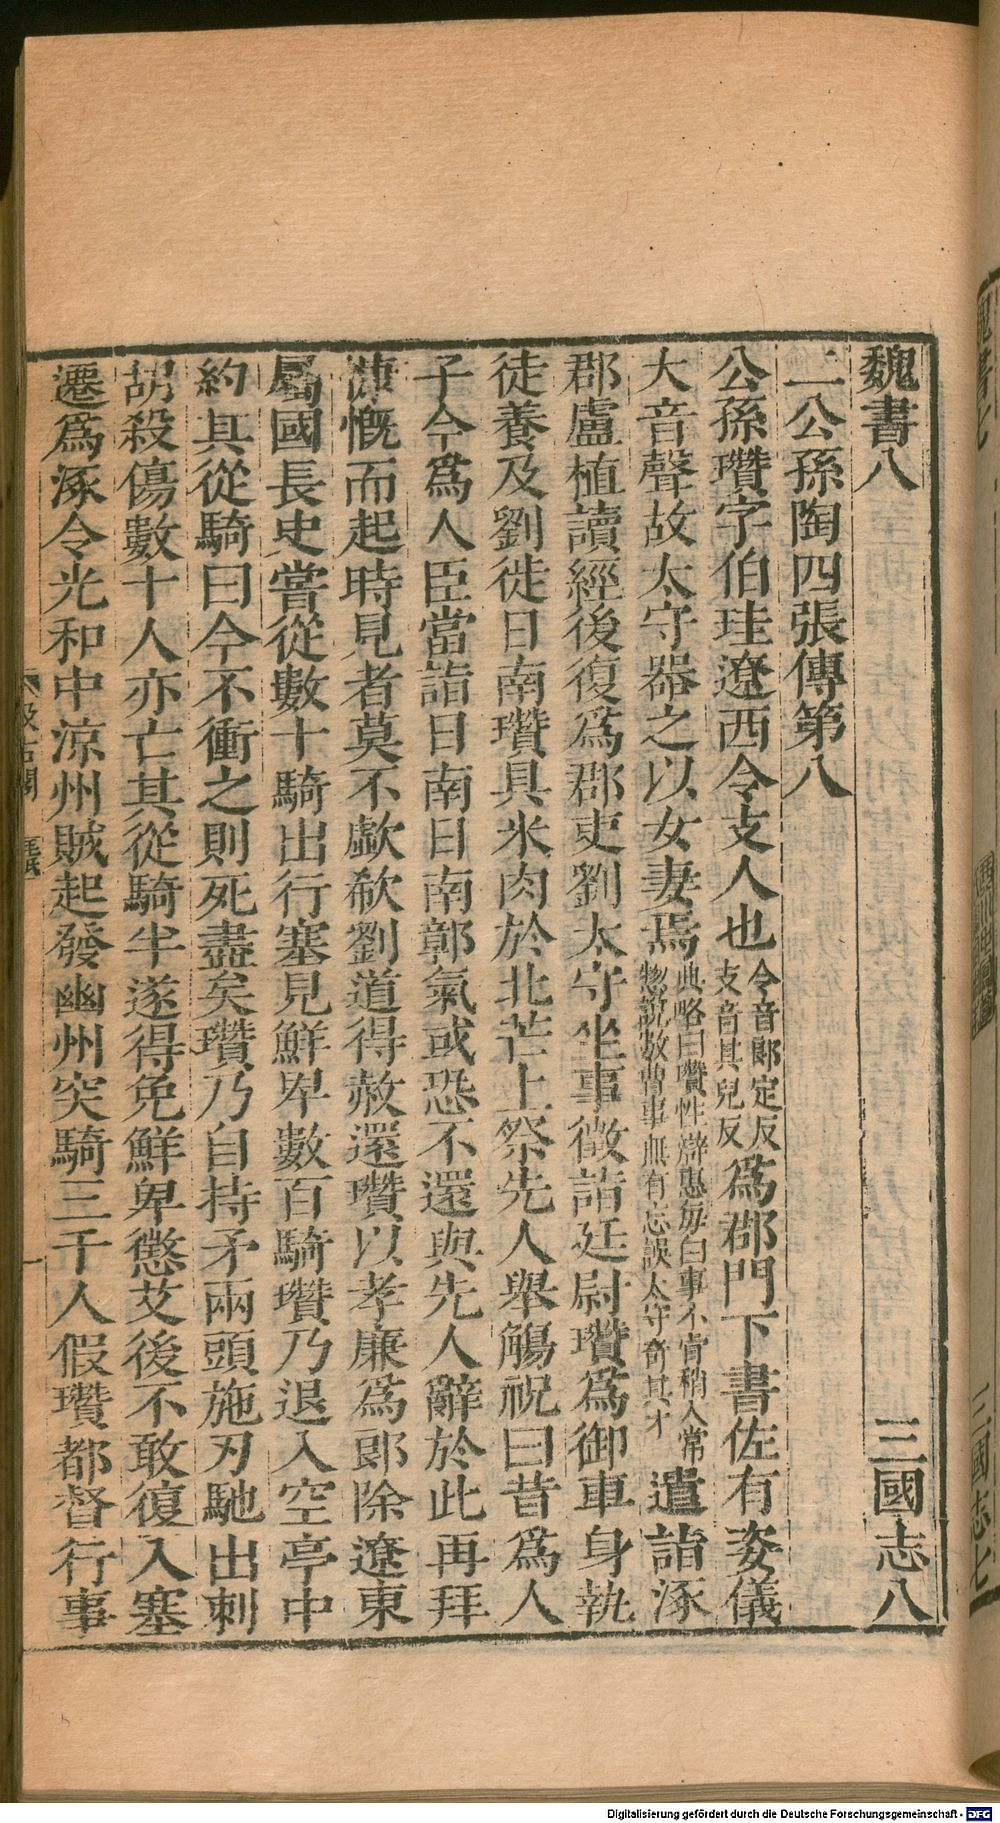 魏書八 三國志八
二公孫陶四張傳第八
公孫瓚字伯珪遼西令支人也令音郎定反支音其兒反爲郡門下書佐有姿儀
大音聲故太守器之以女妻焉典略曰瓚性辯慧每白事不肯稍入常惣說數曹事無有忘誤太守奇其才遣詣涿
郡盧植讀經後復爲郡吏劉太守坐事徵詣廷尉瓚爲御車身執
徒養及劉徙日南瓚具米肉於北芒上祭先人舉觴祝曰昔爲人
子今爲人臣當詣日南日南鄣氣或恐不還與先人辭於此再拜
慷慨而起時見者莫不歔欷劉道得赦還瓚以孝廉爲郎除遼東
屬國長史嘗從數十騎出行塞見鮮卑數百騎瓚乃退入空亭中
約其從騎曰今不衝之則死盡矣瓚乃自持矛兩頭施刃馳出刺
胡殺傷數十人亦亡其從騎半遂得免鮮卑懲艾後不敢復入塞
遷爲涿令光和中涼州賊起發幽州突騎三千人假瓚都督行事
汲古閣
一
三國志七
Digitalisierung gefördert durch die Deutsche Forschungsgemeinschaft - DFG